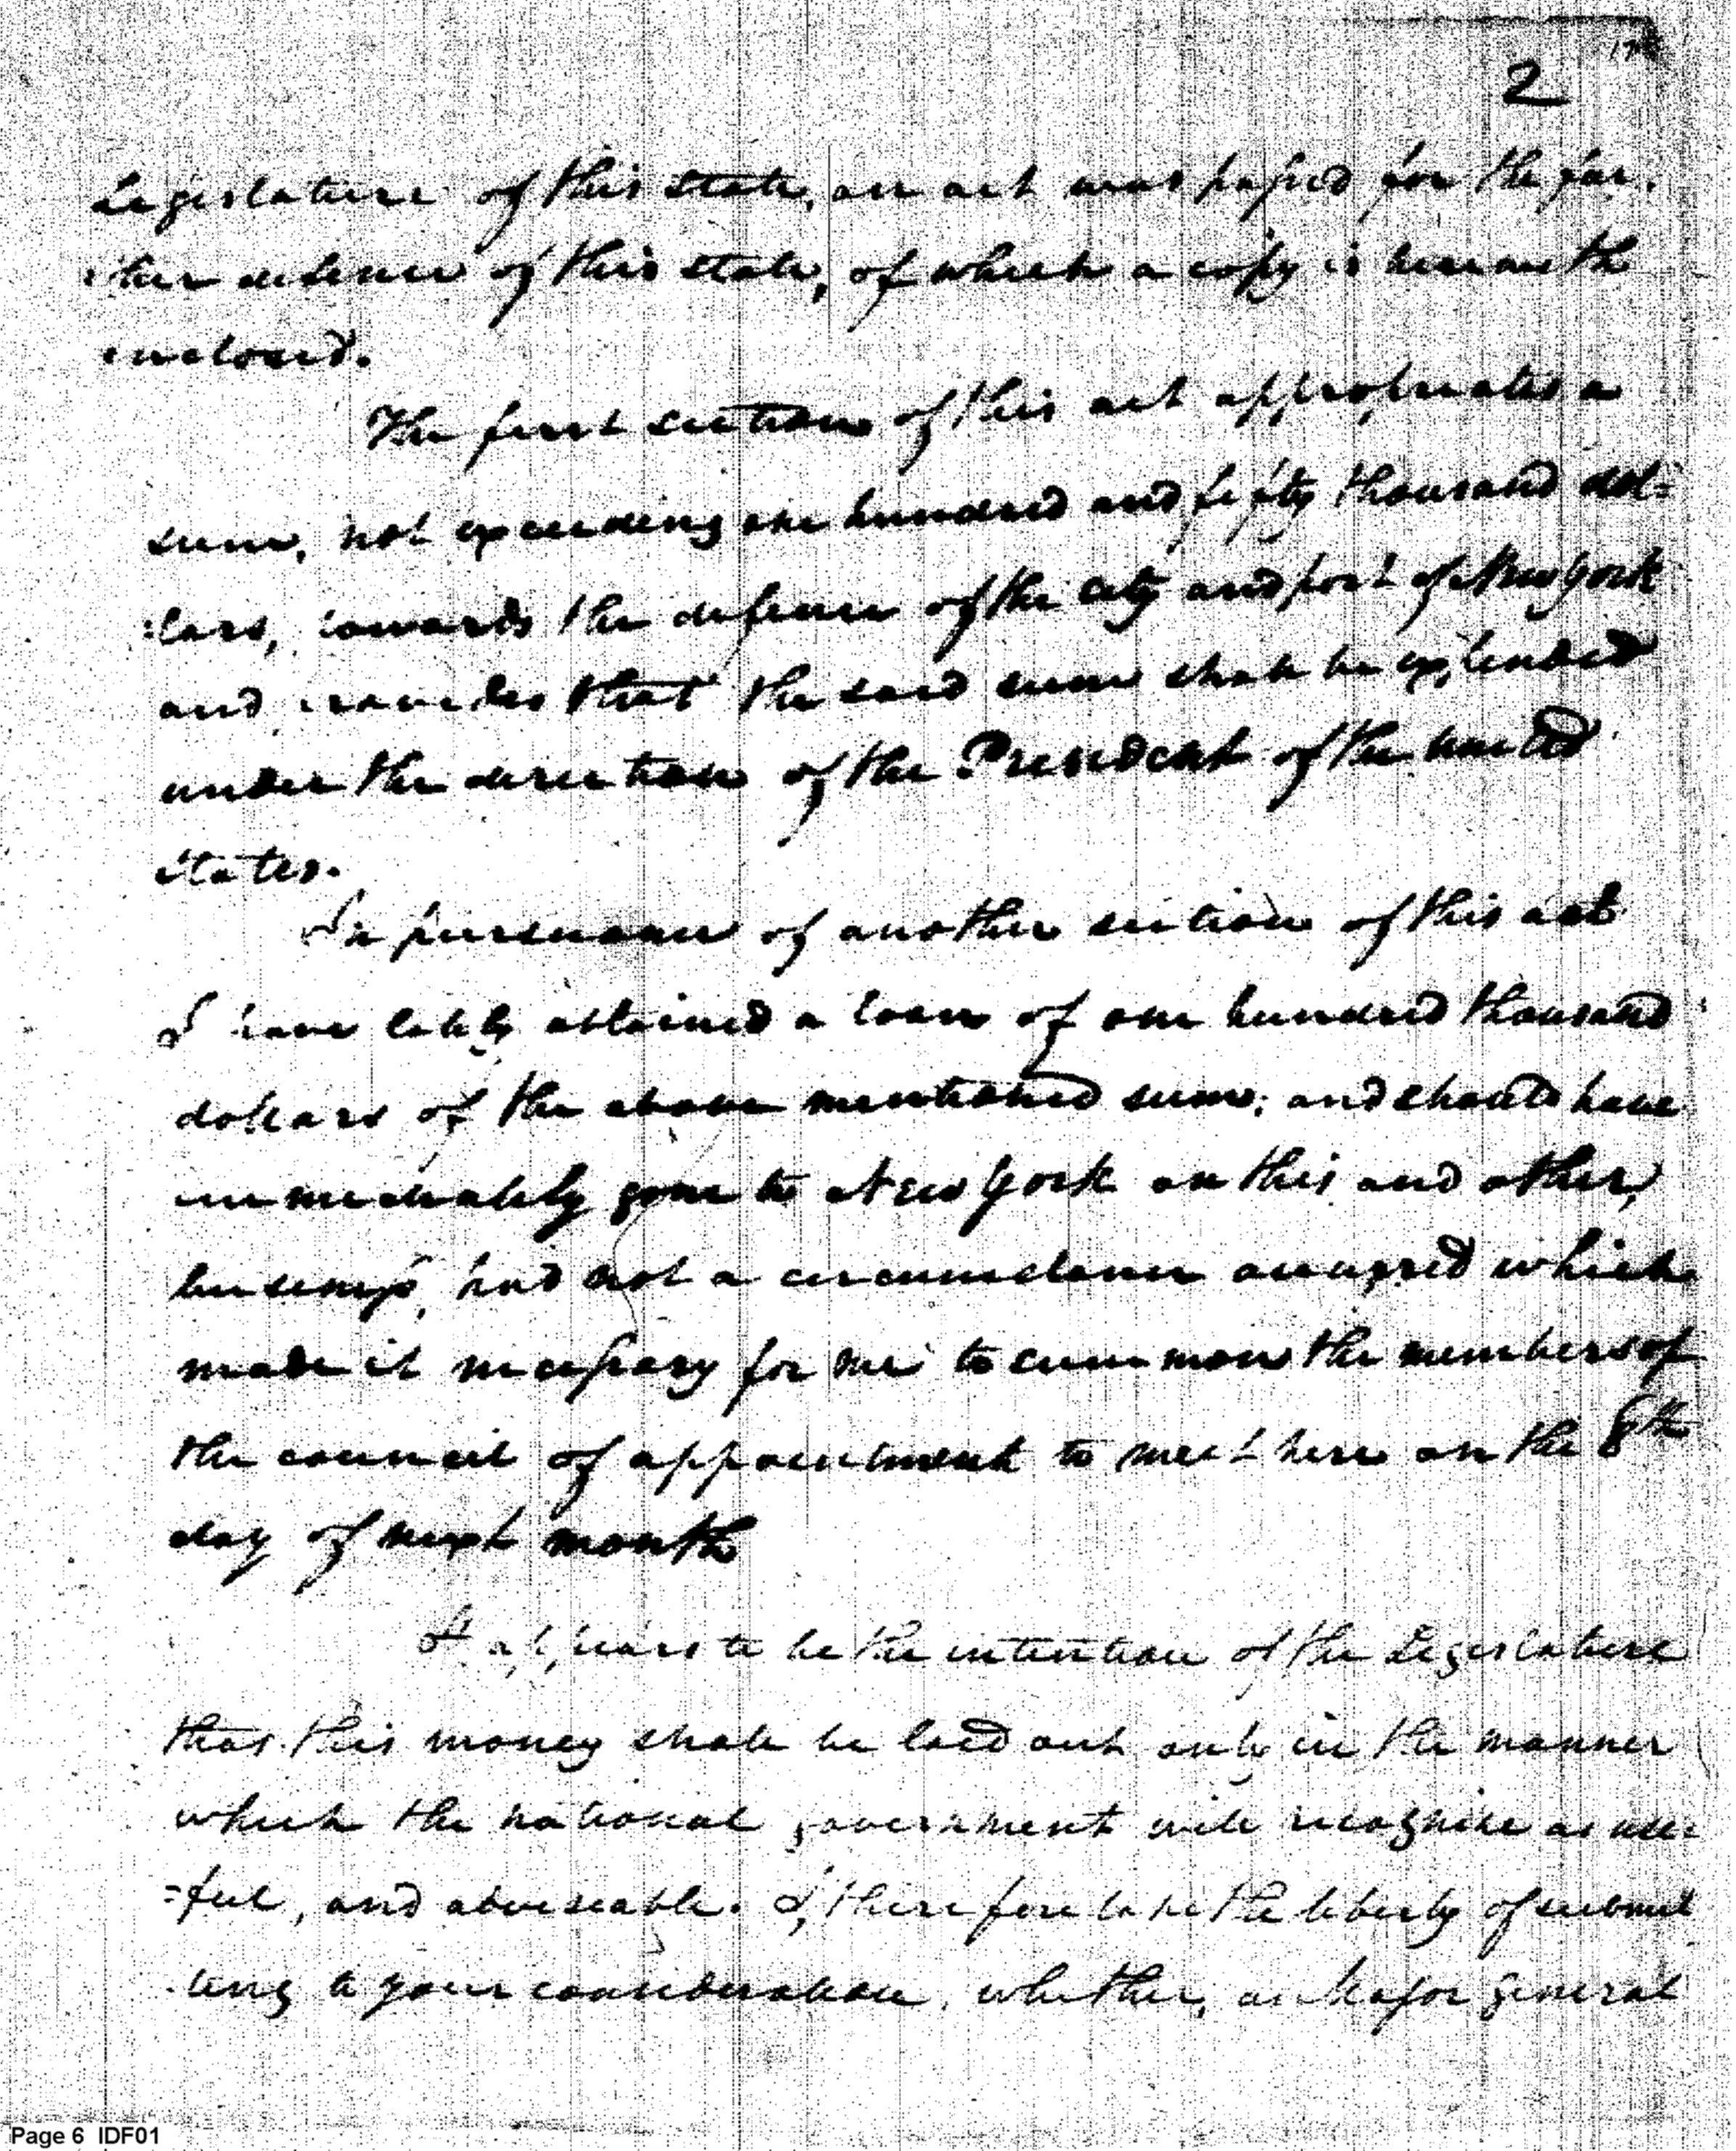 2
Legislature of this state, an act was passed for the fur
ther defence of this state, of which a copy is herewith
inclosed.
The first section of this act appropriates a
sum, not exceeding one hundred and fifty thousand dol=
:lars, towards the defence of the city and port of New York
and provides that the said sum shall be expended
under the direction of the President of the united
states.
In pursuance of another section of this act
I have lately obtained a loan of one hundred thousand
dollars of the above mentioned sum; and should have
immediately gone to New York on this and other,
business, had not a circumstance occurred which
made it necessary for me to summon the members of
the council of appointment to meet here on the 8th
day of next month
It appears to be the intention of the Legislature
that this money shall be laid out only in the manner
which the national government will recognize as use=
=ful, and adviseable. I, therefore take the liberty of submit
ting to your consideration, whether, as Major general
Page 6 IDF01